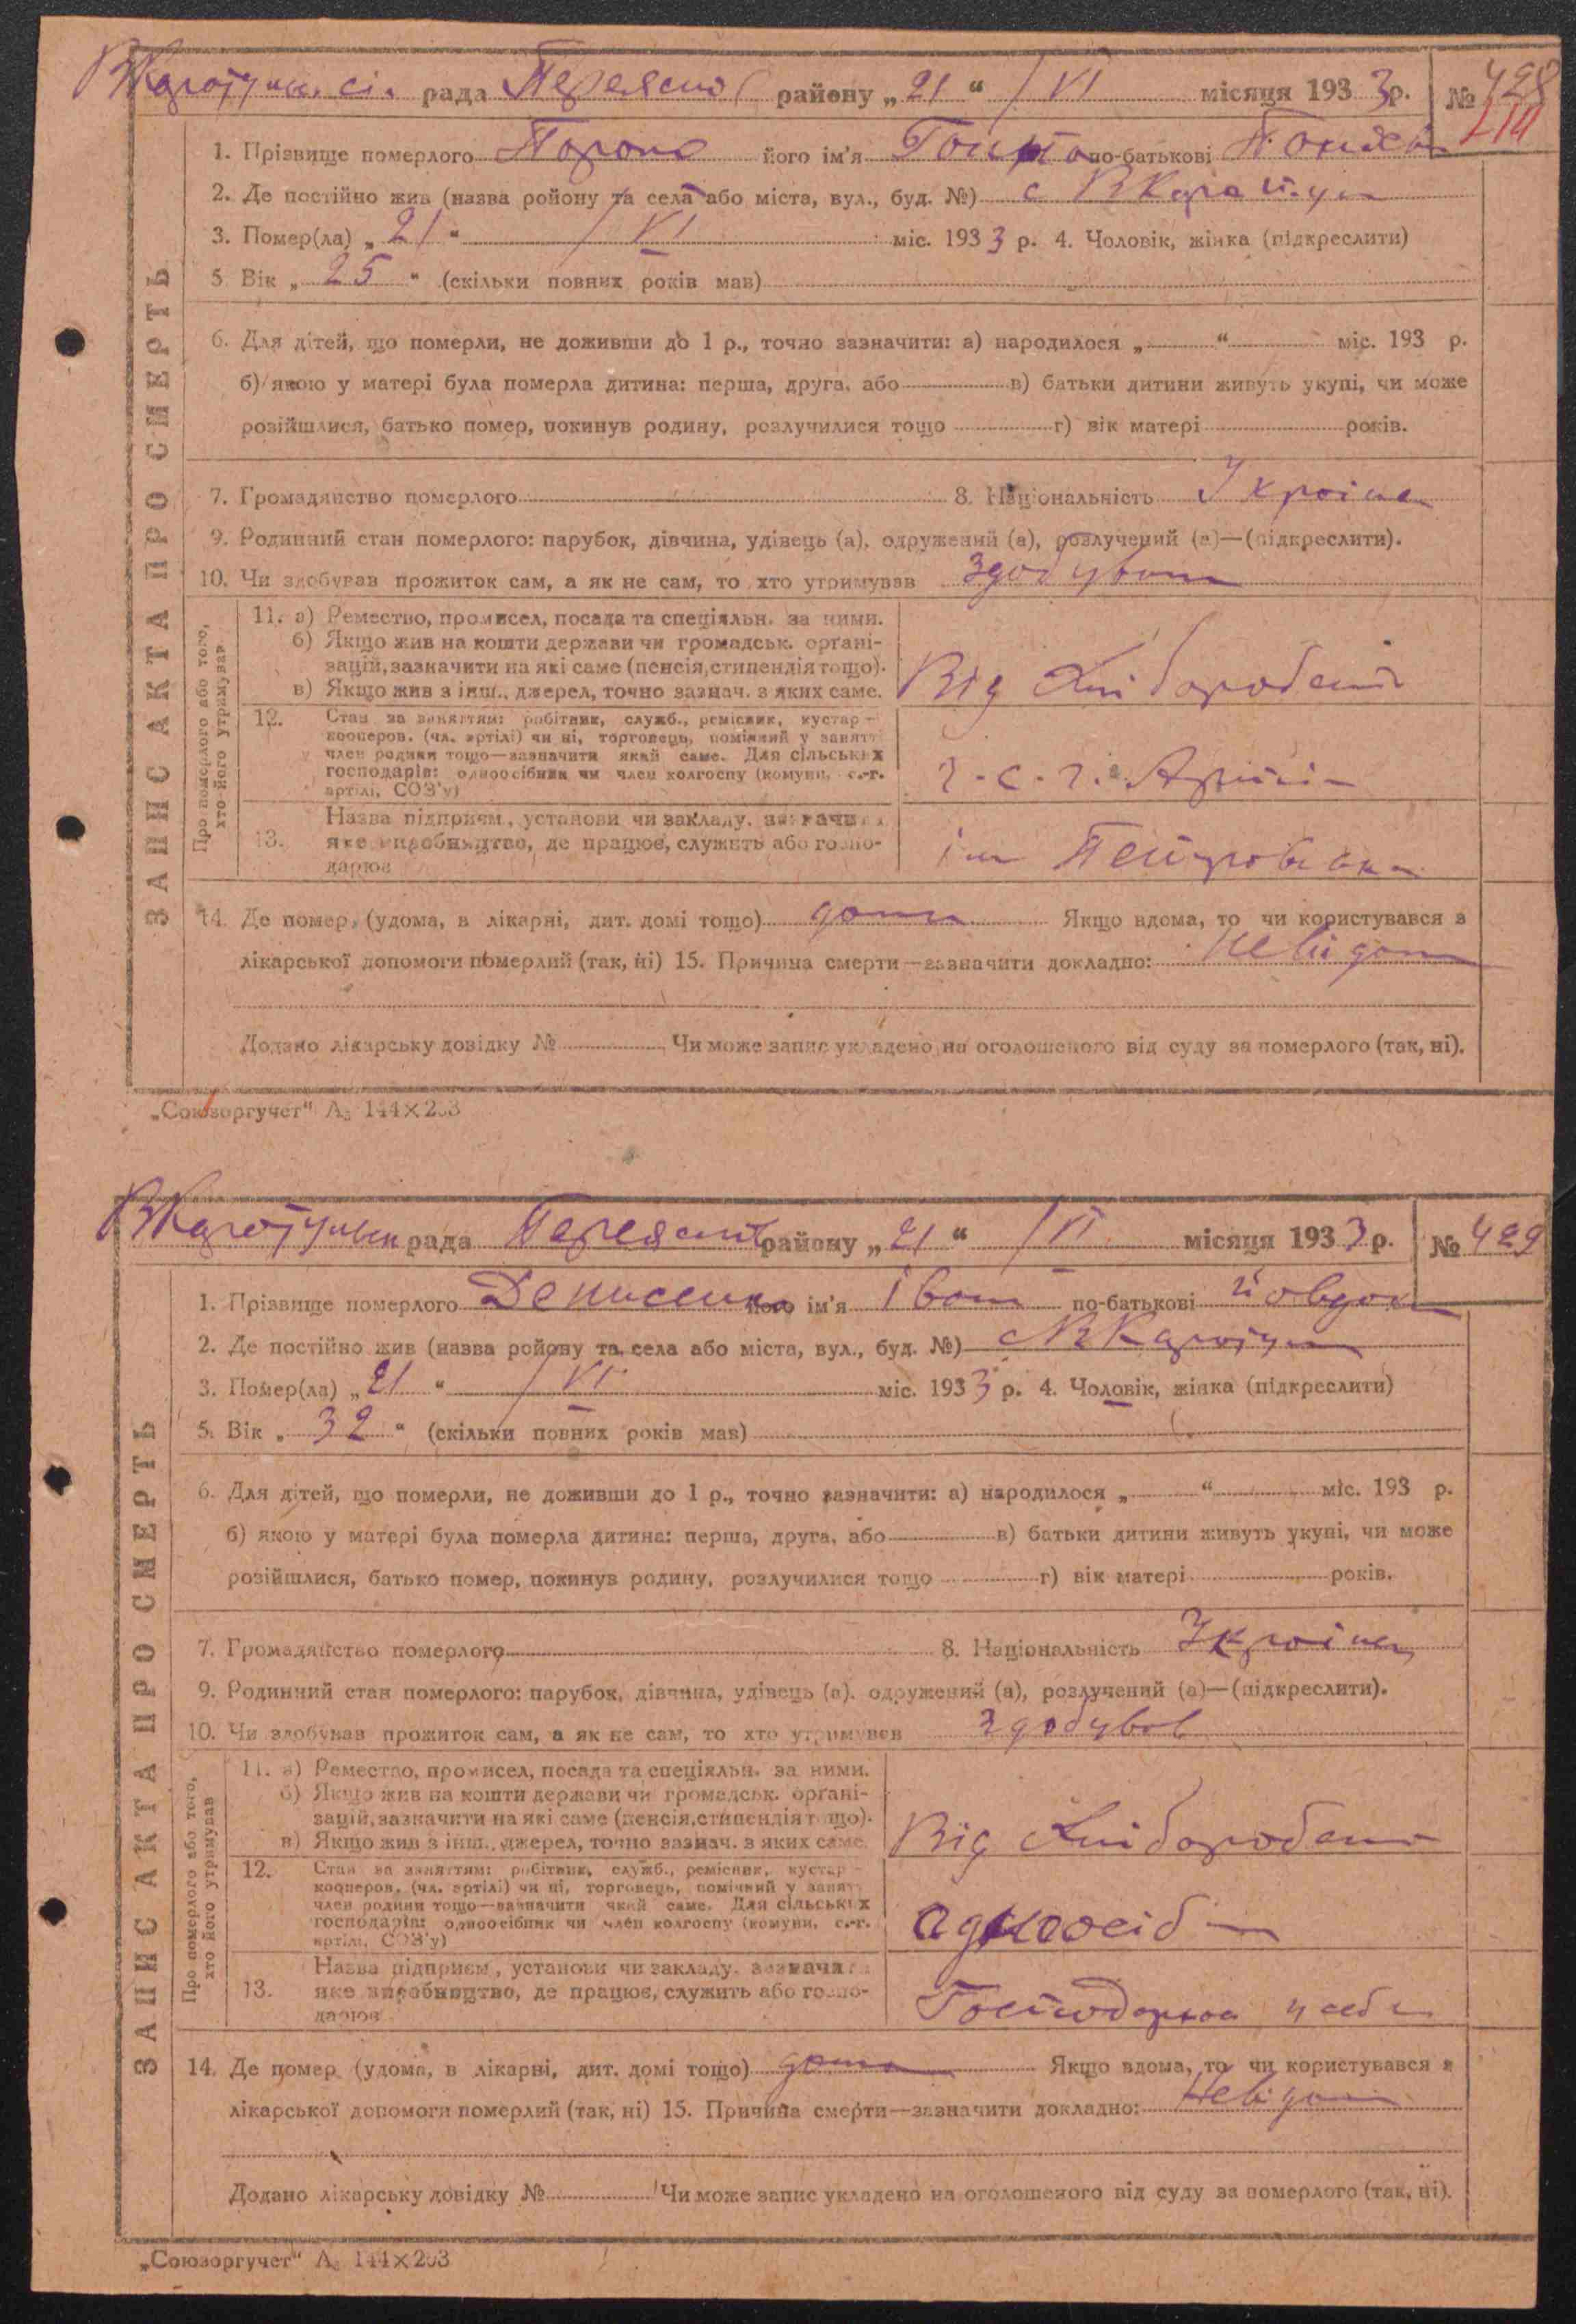 ВКаратульс. сіл. рада Переяслів району „21“ /VI місяця 1933 р. № 428
211
1. Прізвище померлого його ім'я по-батькові
2. Де постійно жив (назва ройону та села або міста, вул., буд. №) с ВКаратул
3. Помер(ла) „21“ /VI міс. 1933 р. 4. Чоловік, жінка (підкреслити)
5 Вік „25“ (скільки повних років мав)
6. Для дітей, що померли, не доживши до 1 р., точно зазначити: а) народилося „ “ міс. 193 р.
б) якою у матері була померла дитина: перша, друга, або в) батьки дитини живуть укупі, чи може
розійшлися, батько помер, покинув родину, розлучилися тощо г) вік матері років.
7. Громадянство померлого 8. Національність Україн
9. Родинний стан померлого: парубок, дівчина, удівець (а), одружений (а), розлучений (а)—(підкреслити).
10. Чи здобував прожиток сам, а як не сам, то хто утримував Здобував
ЗАПИС АКТА ПРО СМЕРТЬ
Про померлого або того, хто його утримував
11. а) Ремество, промисел, посада та спеціяльн. за ними.
б) Якщо жив на кошти держави чи громадськ. органі-
зацій, зазначити на які саме (пенсія, стипендія тощо).
в) Якщо жив з інш., джерел, точно зазнач. з яких саме.
Від Хліборобства
12. Стан за заняттям: робітник, служб., ремісник, кустар-
кооперов. (чл. артілі) чи ні, торговець, помічний у занятті
член родини тощо—зазначити який саме. Для сільських
господарів: одноосібник чи член колгоспу (комуни, с.-г.
артілі, СОЗ'у)
ч. с. г. Артілі
13. Назва підприєм., установи чи закладу. зазначити
яке виробництво, де працює, служить або госпо-
дарює
ім Петровськ
14. Де помер, (удома, в лікарні, дит. домі тощо) дома Якщо вдома, то чи користувався з
лікарської допомоги померлий (так, ні) 15. Причина смерти—зазначити докладно: Невідом
Додано лікарську довідку № Чи може запис укладено на оголошеного від суду за померлого (так, ні).
„Союзоргучет“ А5 144×203
ВКаратульськ рада Переяслів району „21“ /VI місяця 1933 р. № 429
1. Прізвище померлого Денисенко його ім'я Іван по-батькові Йовдок
2. Де постійно жив (назва ройону та села або міста, вул., буд. №) с ВКаратул
3. Помер(ла) „21“ /VI міс. 1933 р. 4. Чоловік, жінка (підкреслити)
5. Вік „32“ (скільки повних років мав)
6. Для дітей, що померли, не доживши до 1 р., точно зазначити: а) народилося „ “ міс. 193 р.
б) якою у матері була померла дитина: перша, друга, або в) батьки дитини живуть укупі, чи може
розійшлися, батько помер, покинув родину, розлучилися тощо г) вік матері років.
7. Громадянство померлого 8. Національність Україн
9. Родинний стан померлого: парубок, дівчина, удівець (а), одружений (а), розлучений (а)—(підкреслити).
10. Чи здобував прожиток сам, а як не сам, то хто утримував здобував
ЗАПИС АКТА ПРО СМЕРТЬ
Про померлого або того, хто його утримував
11. а) Ремество, промисел, посада та спеціяльн. за ними.
б) Якщо жив на кошти держави чи громадськ. органі-
зацій, зазначити на які саме (пенсія, стипендія тощо).
в) Якщо жив з інш., джерел, точно зазнач. з яких саме.
Від Хліборобства
12. Стан за заняттям: робітник, служб., ремісник, кустар-
кооперов. (чл. артілі) чи ні, торговець, помічний у занятті
член родини тощо—зазначити який саме. Для сільських
господарів: одноосібник чи член колгоспу (комуни, с.-г.
артілі, СОЗ'у)
одноосіб
13. Назва підприєм., установи чи закладу. зазначити
яке виробництво, де працює, служить або госпо-
дарює
Господарює у себе
14. Де помер (удома, в лікарні, дит. домі тощо) дома Якщо вдома, то чи користувався з
лікарської допомоги померлий (так, ні) 15. Причина смерти—зазначити докладно: Невідом
Додано лікарську довідку № Чи може запис укладено на оголошеного від суду за померлого (так, ні).
„Союзоргучет“ А5 144×203